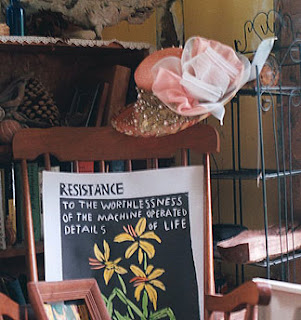 RESISTANCE
TO THE WORTHLESSNESS
OF THE MACHINE OPERATED
DETAILS OF LIFE